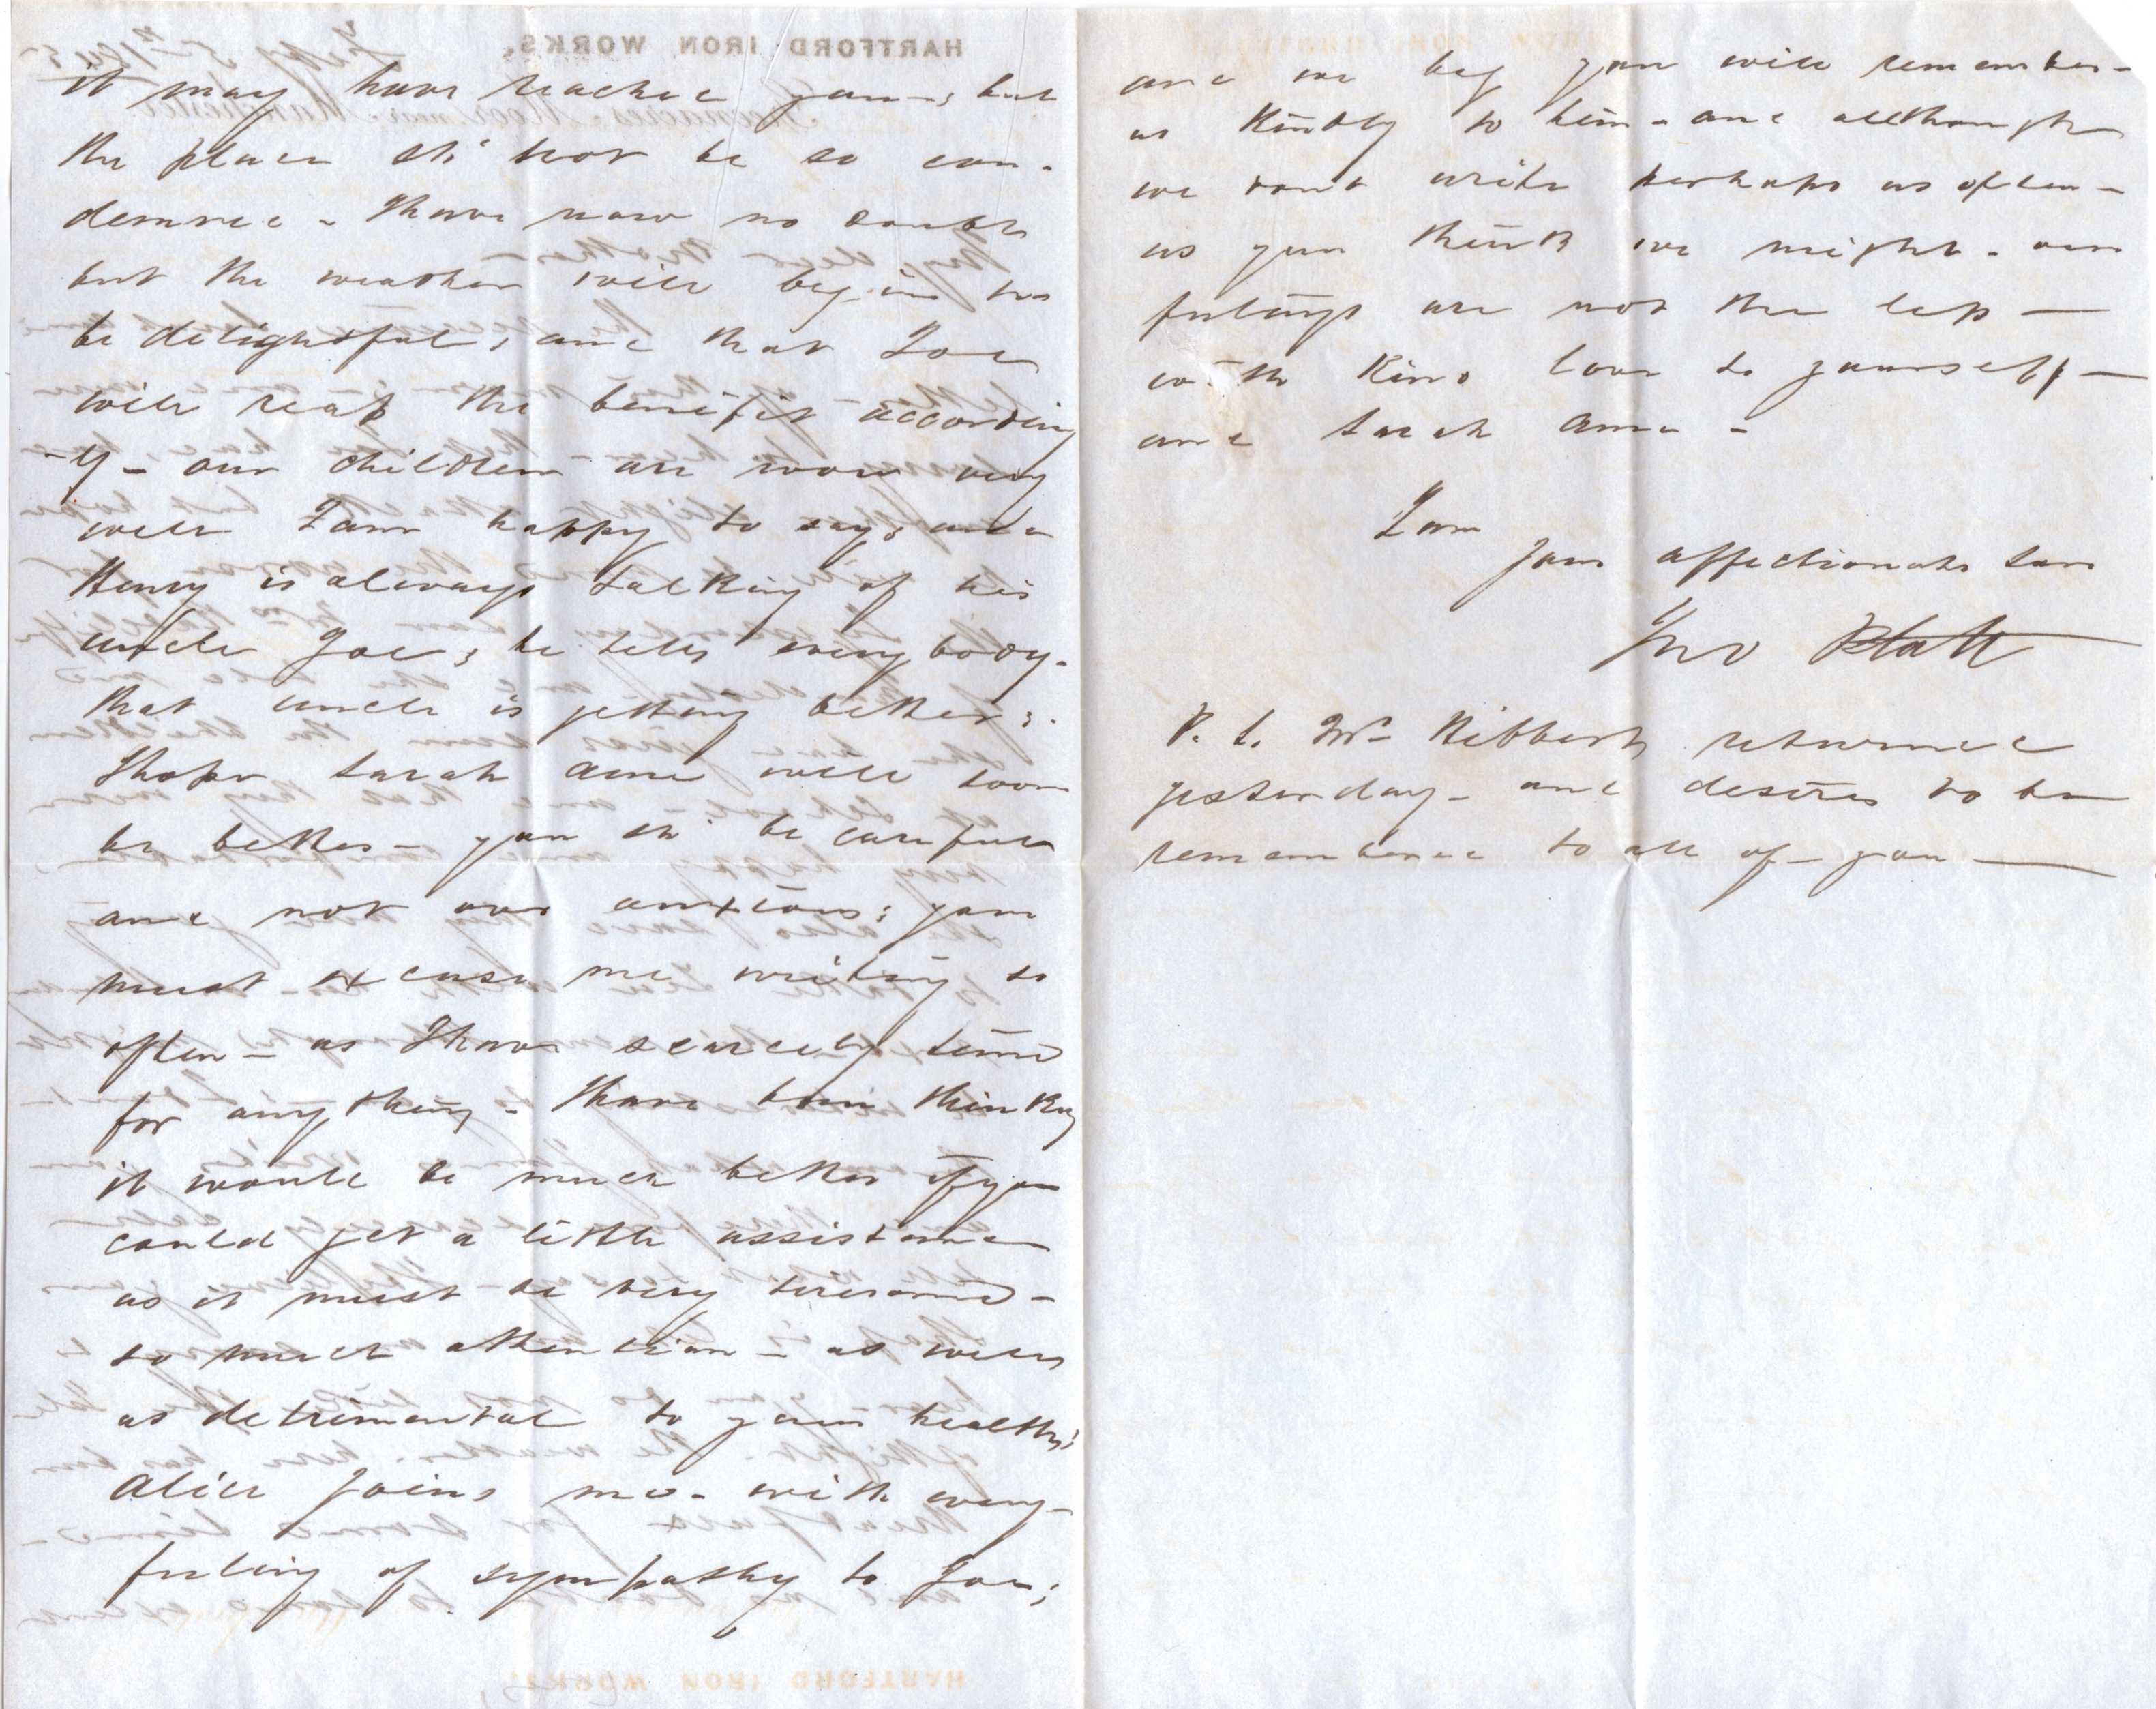 HARTFORD IRON WORKS,
it may have reached you; but
the place shd not be so con-
demned - I have now no doubt
but the weather will begin to
be delightful, and that Joe
will reap the benefit according
-ly - our children are now very
well I am happy to say; and
Henry is always talking of his
uncle Joe; he tells every body -
that uncle is getting better;
I hope Sarah Ann will soon
be better - you shd be careful
and not over anxious; you
must excuse me writing so
often - as I have scarcely time
for any thing - I have been thinking
it would be much better if you
could get a little assistance
as it must be very tiresome -
so much attention - as well
as detrimental to your health;
Alice joins me - with every -
feeling of sympathy to Joe;
HARTFORD IRON WORKS,
and we beg you will remember -
us kindly to him - and allthough
we dont write perhaps as often -
as you think we might - our
feelings are not the less —
with kind love to yourself —
and Sarah Ann -
I am
your affectionate son
Jno Platt
P. S. Mr Hibbert returned
yesterday - and desires to be
remembered to all of - you —